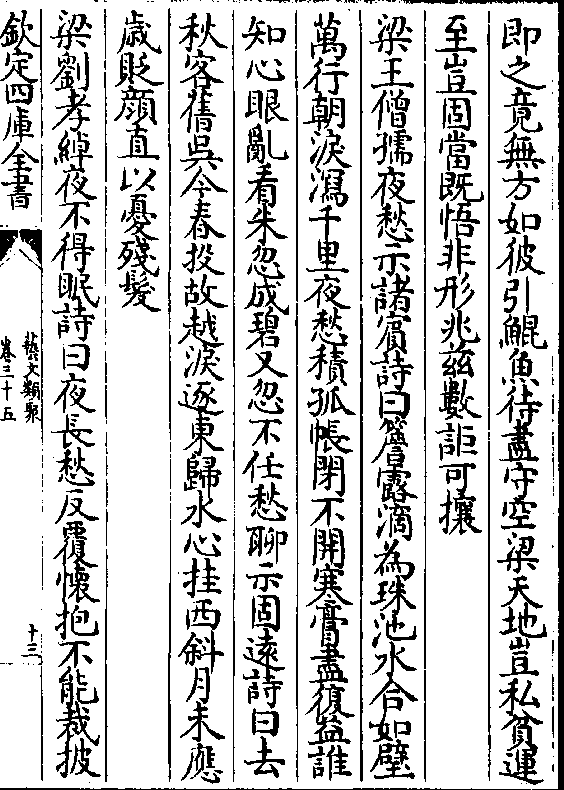 即之竟無方如彼引鯤魚待盡守空梁天地豈私貧運
至豈固當既悟非形兆茲數詎可攘
梁王僧孺夜愁示諸賓詩曰簷露滴為珠池水合如璧
萬行朝淚瀉千里夜愁積孤帳閉不開寒膏盡復益誰
知心眼亂看朱忽成碧又忽不任愁聊示固遠詩曰去
秋客舊吳今春投故越淚逐東歸水心挂西斜月未應
歲貶顔直以憂殘髮
梁劉孝綽夜不得眠詩曰夜長愁反覆懷抱不能裁披
欽定四庫全書
藝文類聚
卷三十五
十三